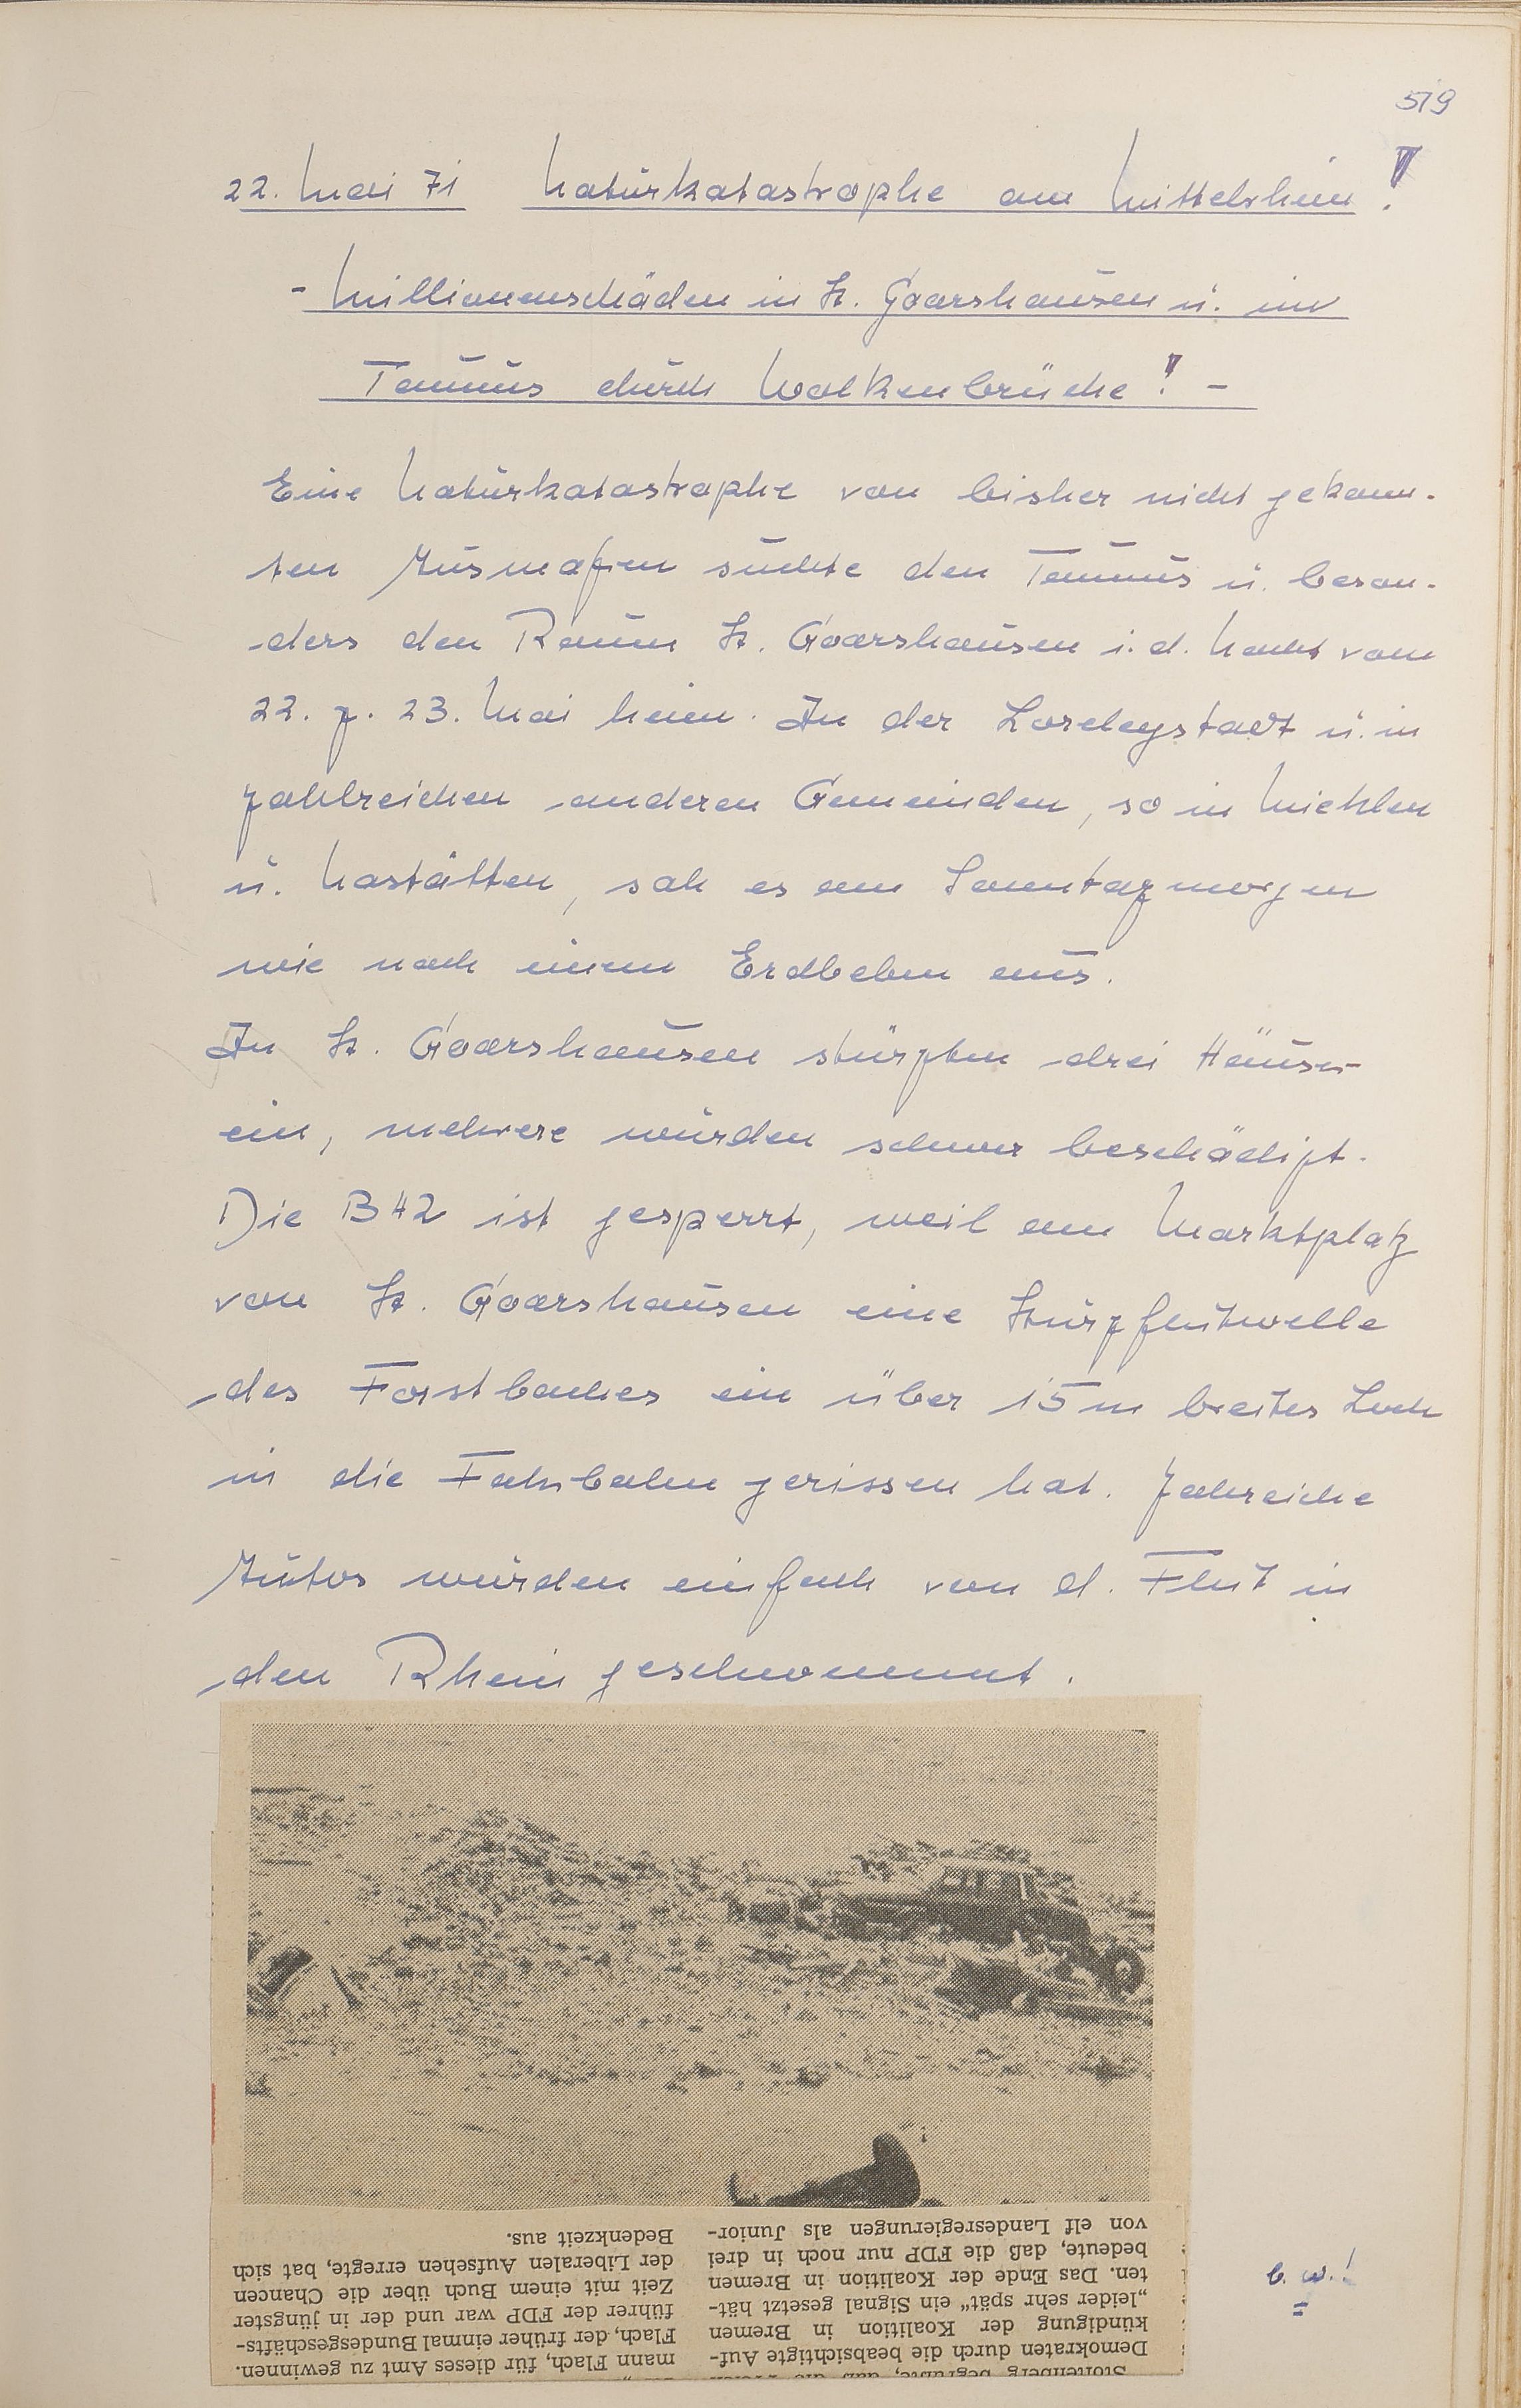 519
22. Mai 71 Naturkatastrophe am Mittelrhein!
- Millionenschäden in St. Goarshausen u. im
Taunus durch Wolkenbrüche! -
Eine Naturkatastrophe von bisher nicht gekann-
ten Ausmaßen suchte den Taunus u. beson-
ders den Raum St. Goarshausen i. d. Nacht vom
22. z. 23. Mai heim. In der Loreleystadt u. in
zahlreichen anderen Gemeinden, so in Miehlen
u. Nastätten, sah es am Sonntagmorgen
wie nach einem Erdbeben aus.
In St. Goarshausen stürzten drei Häuser
ein, mehrere wurden schwer beschädigt.
Die B42 ist gesperrt, weil am Marktplatz
von St. Goarshausen eine Sturzflutwelle
des Forstbaches ein über 15m breites Loch
in die Fahrbahn gerissen hat. Zahreiche
Autos wurden einfach von d. Flut in
den Rhein geschwemmt.
Stoltenberg begrüßte, daß die
Demokraten durch die beabsichtigte Auf-
kündigung der Koalition in Bremen
„leider sehr spät“ ein Signal gesetzt hät-
ten. Das Ende der Koalition in Bremen
bedeute, daß die FDP nur noch in drei
von elf Landesregierungen als Junior-
mann Flach, für dieses Amt zu gewinnen.
Flach, der früher einmal Bundesgeschäfts-
führer der FDP war und der in jüngster
Zeit mit einem Buch über die Chancen
der Liberalen Aufsehen erregte, bat sich
Bedenkzeit aus.
b. w.!